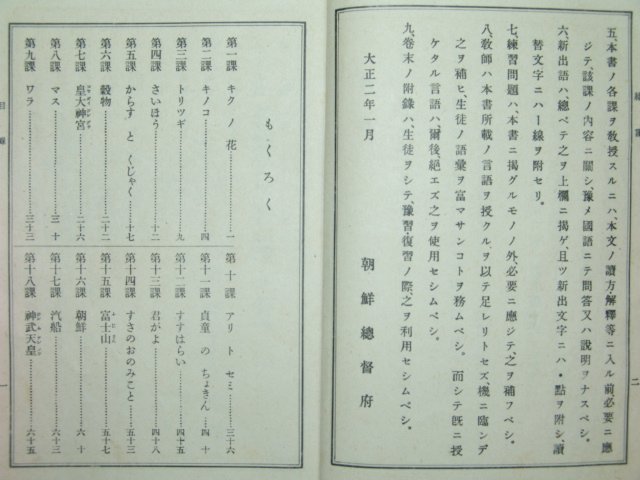 五、本書ノ各課ヲ敎授スルニハ、本文ノ讀方・解釋等ニ入ル前必要ニ應
ジテ、該課ノ内容ニ關シ、豫メ國語ニテ問答又ハ說明ヲナスベシ。
六、新出語ハ、總ベテ之ヲ上欄ニ揭ゲ、且ツ新出文字ニハ・點ヲ附シ、讀
替文字ニハー線ヲ附セリ。
七、練習問題ハ、本書ニ揭グルモノノ外、必要ニ應ジテ、之ヲ補フベシ。
八、敎師ハ本書所載ノ言語ヲ授クルヲ以テ足レリトセズ、機ニ臨ンデ
之ヲ補ヒ、生徒ノ語彙ヲ富マサンコトヲ務ムベシ。而シテ旣ニ授
ケタル言語ハ、爾後、絕エズ之ヲ使用セシムベシ。
九、卷末ノ附錄ハ、生徒ヲシテ、豫習・復習ノ際之ヲ利用セシムベシ。
大正二年一月
朝鮮總督府
二
もくろく
第一課 キクノ花………一
第二課 キノコ………四
第三課 トリツギ………九
第四課 さいほう………十二
第五課 からす と くじゃく………十七
第六課 穀物………二十二
第七課 皇大神宮………二十六
第八課 マス………三十
第九課 ワラ………三十三
第十課 アリ ト セミ………三十六
第十一課 貞童 の ちょきん………四十
第十二課 すすはらい………四十五
第十三課 君がよ………四十八
第十四課 すさのおのみこと………五十三
第十五課 富士山………五十七
第十六課 朝鮮………六十
第十七課 汽船………六十三
第十八課 神武天皇………六十五
目錄
一